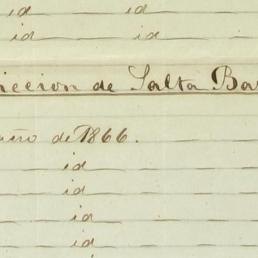 id id
id id
iccion de Salta Ba
año de 1866.
id
id
id
id